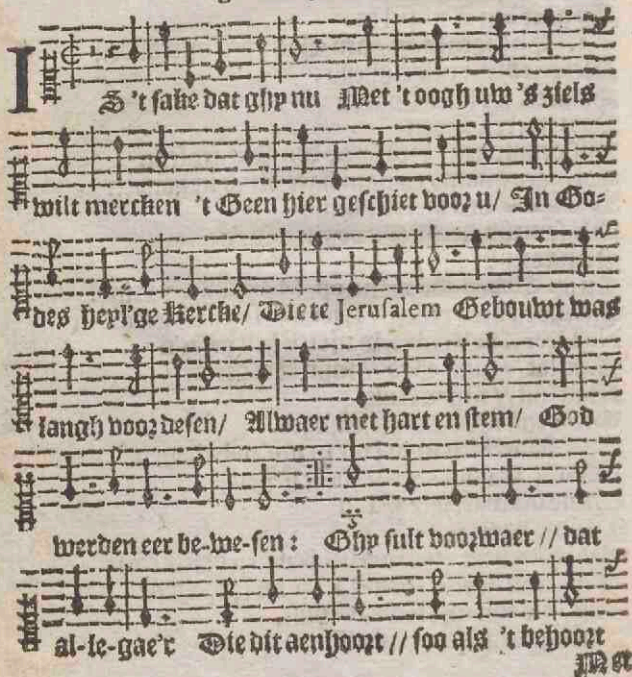 IS 't sake dat ghy nu Met 't oogh uw 's ziels
wilt mercken 't Geen hier geschiet voor u/ In Go-
des heyl'ge Kercke/ Die te Jerusalem Gebouwt was
langh voor desen/ Alwaer met hart en stem/ God
werden eer be-we-sen: Ghy sult voorwaer // dat
al-le-gae'r Die dit aenhoort // soo als 't behoort
Met